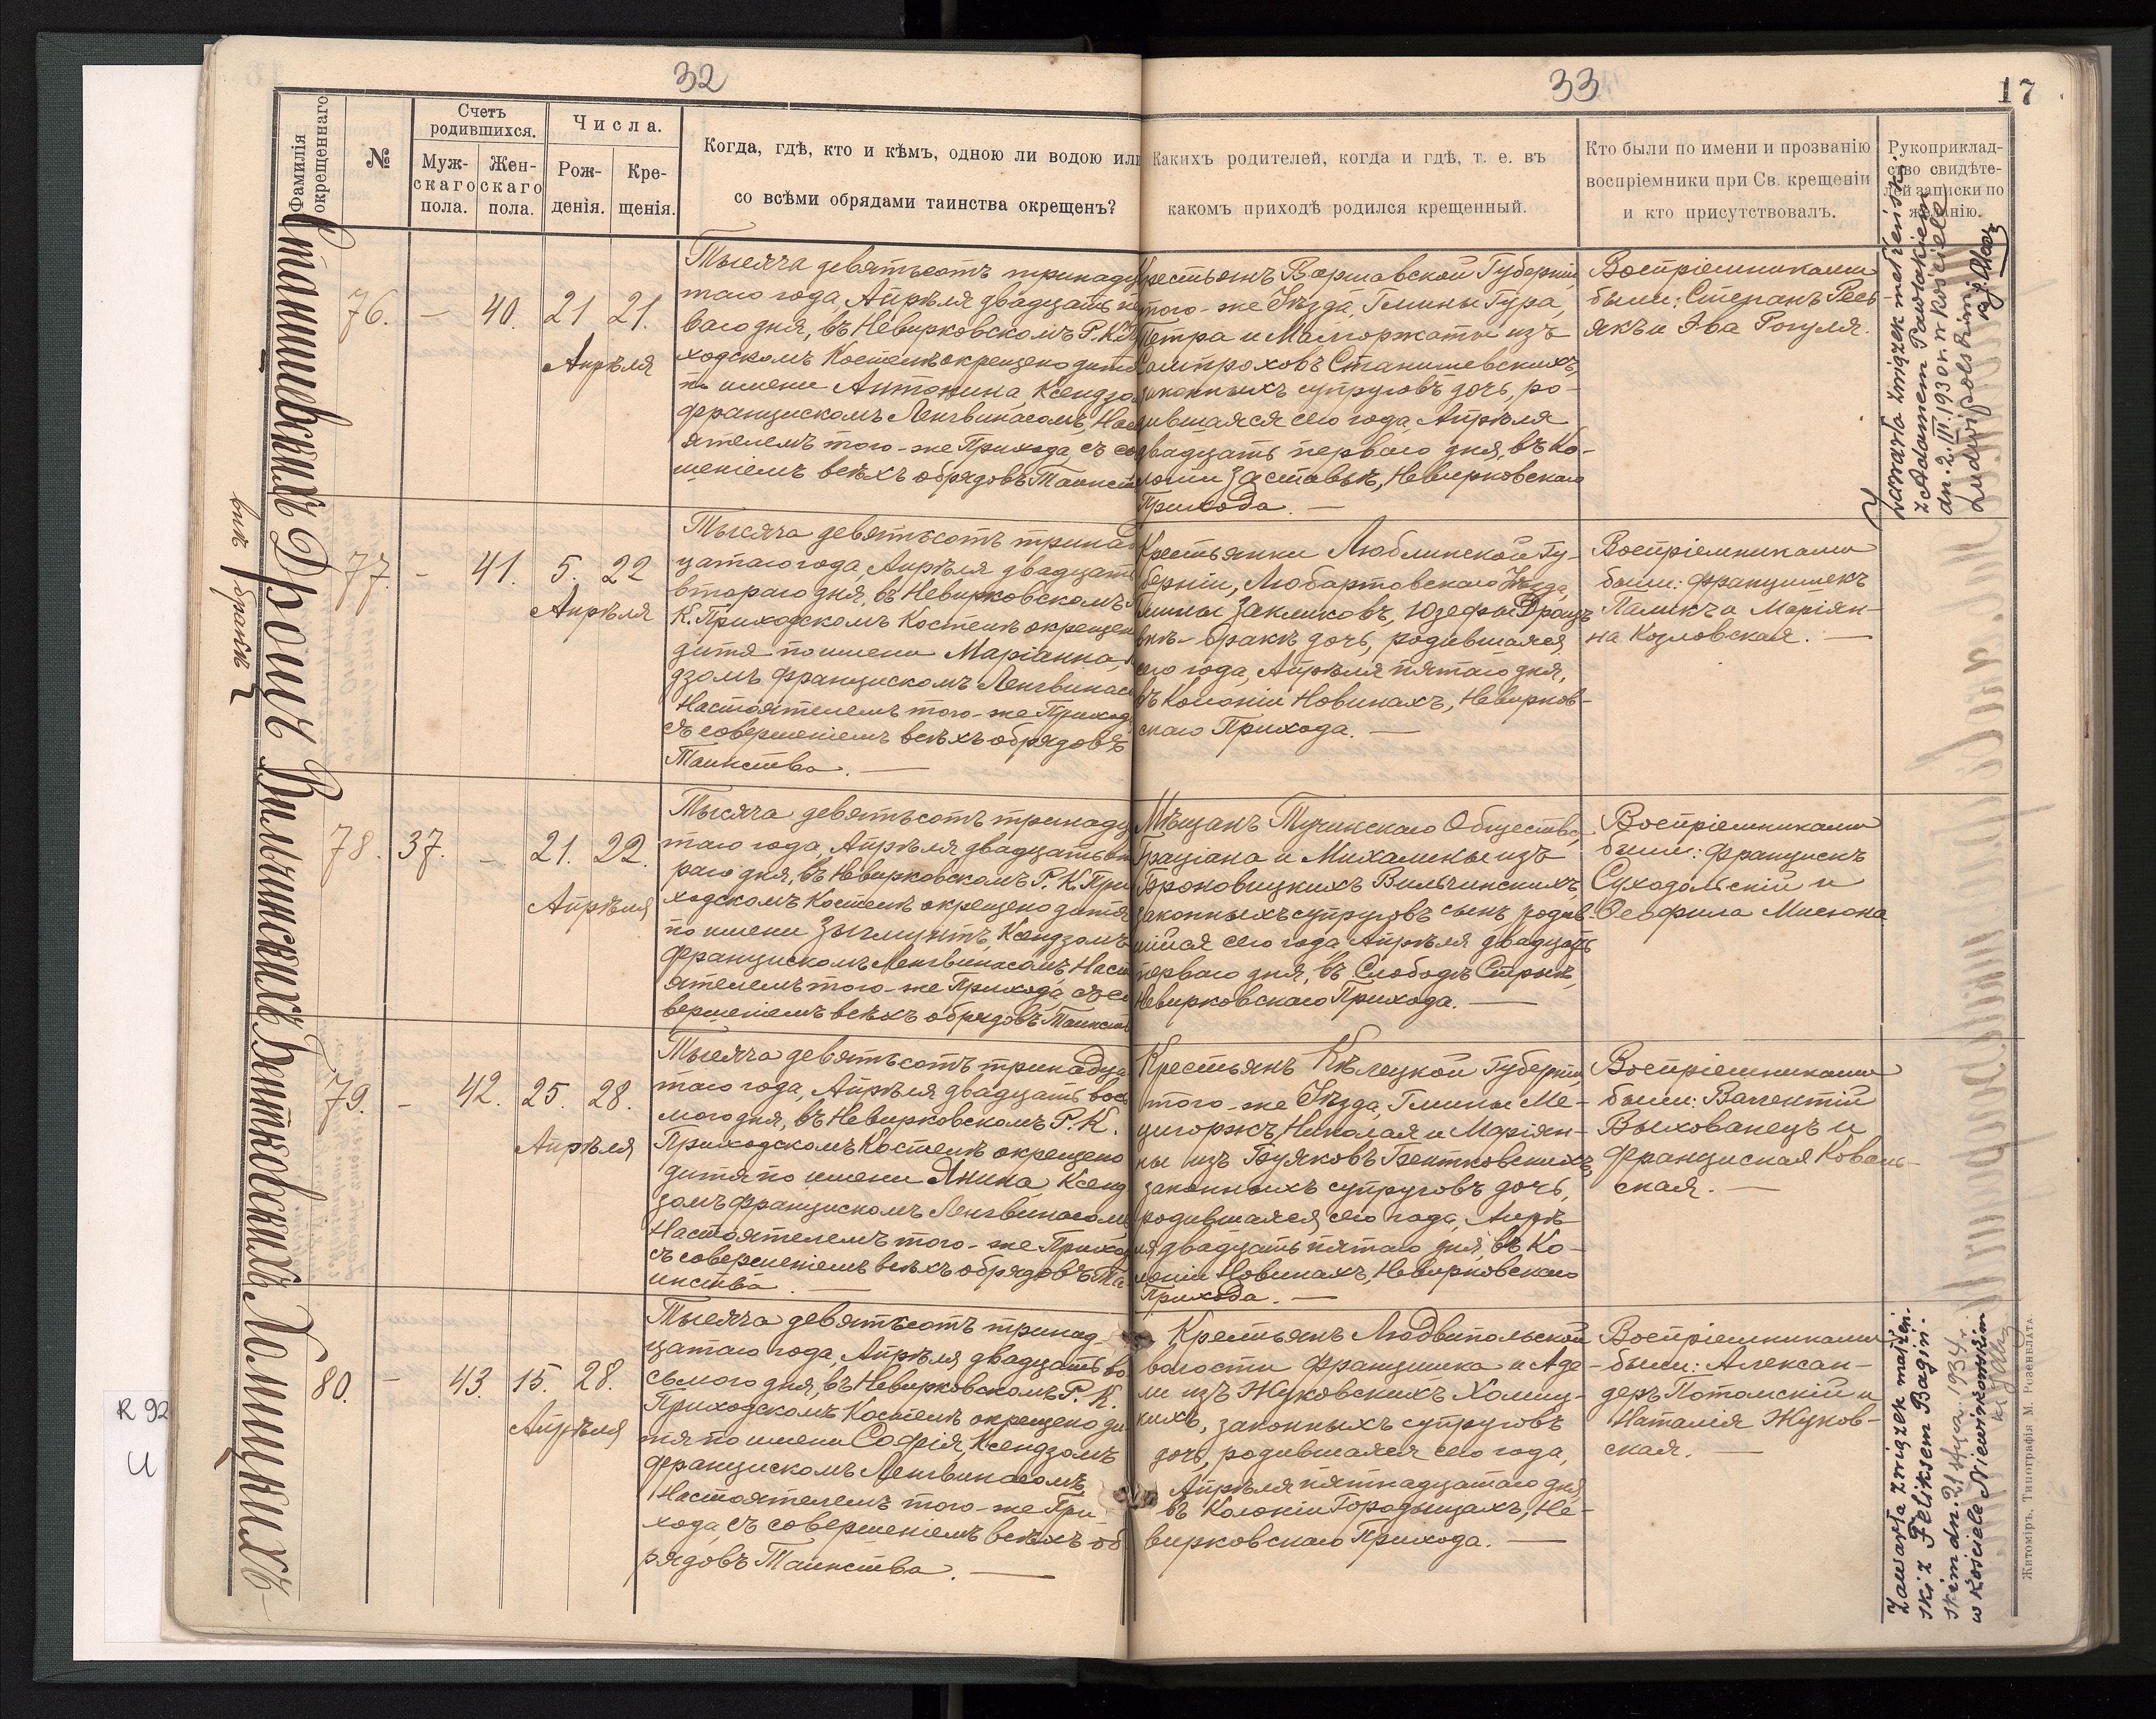 32
33
17
Фамилія окрещеннаго
№
Счетъ родившихся.
Мужскаго пола.
Женскаго пола.
Числа.
Рожденія.
Крещенія.
Когда, гдѣ, кто и кѣмъ, одною ли водою или
со всѣми обрядами таинства окрещенъ?
Какихъ родителей, когда и гдѣ, т. е. въ
какомъ приходѣ родился крещенный.
Кто были по имени и прозванію
воспріемники при Св. крещеніи
и кто присутствовалъ.
Рукоприклад-
ство свидѣте-
лей записки по
желанію.
Станишевскихъ
76. — 40. 21 21.
Апрѣля
Тысяча девятьсотъ тринадца
таго года, Апрѣля двадцать пе
ваго дня, въ Невирковскомъ Р. К. При
ходскомъ Костелѣ окрещено дитя
по имени Антонина, Ксендзо
Францискомъ Ленгвинасомъ, Нас
ятелемъ того-же Прихода, съ со
шеніемъ всѣхъ обрядовъ Таинст
Крестьянъ Варшавской Губерніи,
того-же Уѣзда, Гмины Гура,
Петра и Малгоржаты изъ
Станишевскихъ,
законныхъ супруговъ дочь, ро-
дившаяся сего года, Апрѣля
двадцать перваго дня, въ Ко-
лоніи Заставьѣ, Невирковскаго
Прихода. —
Воспріемниками
были: Степанъ
якъ и Эва Рогуля.
zawarła związek małżeński
z Adamem Pawlakiem
dn. 2.III.1930 r. w kościele
Ludwipolskim
Дроич
внѣ брака
77. - 41. 5. 22
Апрѣля
Тысяча девятьсотъ тринад
цатаго года, Апрѣля двадцать
втораго дня, въ Невирковскомъ
К. Приходскомъ Костелѣ окрещен
дитя по имени Маріанна,
дзомъ Францискомъ Ленгвинасо
Настоятелемъ того-же Приход
съ совершеніемъ всѣхъ обрядовъ
Таинства. —
Крестьянки Люблинской Гу-
берніи, Любартовскаго Уѣзда,
Гмины Закликовъ, Юзефы
внѣ-брака дочь, родившаяся
сего года, Апрѣля пятаго дня,
въ Колоніи Новинахъ, Невирков-
скаго Прихода. —
Воспріемниками
были: Францишекъ
и Маріян-
на Козловская. —
Вильчинскихъ
78. 37. - 21. 22.
Апрѣля
Тысяча девятьсотъ тринадца
таго года, Апрѣля двадцать вт
раго дня, въ Невирковскомъ Р. К. При
ходскомъ Костелѣ окрещено дитя
по имени Зыгмунтъ, Ксендзомъ
Францискомъ Ленгвинасомъ, Наст
ятелемъ того-же Прихода, съ со
вершеніемъ всѣхъ обрядовъ Таинст
Мѣщанъ Тучинскаго Общества,
Граціана и Михалины изъ
Броновицкихъ Вильчинскихъ,
законныхъ супруговъ сынъ, родив-
шійся сего года, Апрѣля двадцать
перваго дня, въ Слободѣ Стрыѣ,
Невирковскаго Прихода. —
Воспріемниками
были: Францискъ
Суходольскій и
Ѳеофила Мисюна
Бентковскихъ
79. - 42. 25. 28.
Апрѣля
Тысяча девятьсотъ тринадца
таго года, Апрѣля двадцать вось
мого дня, въ Невирковскомъ Р. К.
Приходскомъ Костелѣ окрещено
дитя по имени Янина, Ксенд
зомъ Францискомъ Ленгвинасомъ,
Настоятелемъ того-же Приход
съ совершеніемъ всѣхъ обрядовъ Та
инства. —
Крестьянъ Кѣлецкой Губерніи,
того-же Уѣзда, Гмины Ме-
цигоржъ, Николая и Маріян-
ны изъ Буяковъ Бентковскихъ,
законныхъ супруговъ дочь,
родившаяся сего года, Апрѣ-
ля двадцать пятаго дня, въ Ко-
лоніи Новинахъ, Невирковскаго
Прихода. —
Воспріемниками
были: Валентій
Выхованецъ и
Францишкая Коваль-
ская. —
Хомицкихъ
80. - 43. 15. 28.
Апрѣля
Тысяча девятьсотъ тринад-
цатаго года, Апрѣля двадцать во
сьмого дня, въ Невирковскомъ Р. К.
Приходскомъ Костелѣ окрещено ди
тя по имени Софія, Ксендзомъ
Францискомъ Ленгвинасомъ,
Настоятелемъ того-же При-
хода, съ совершеніемъ всѣхъ об
рядовъ Таинства. —
Крестьянъ Людвипольской
волости Францишка и Аде-
ли изъ Жуковскихъ Хомиц-
кихъ, законныхъ супруговъ
дочь, родившаяся сего года,
Апрѣля пятнадцатаго дня
въ Колоніи Городыщахъ, Не-
вирковскаго Прихода. —
Воспріемниками
были: Алексан-
деръ Потомскій и
Наталія Жуков-
ская. —
Zawarła związek małżeń-
ski z Feliksem Bagiń-
skim dn. 21 stycz. 1934 r.
w kościele Niewirkowskim
Житомiръ, Типографiя М. Розенблата.
R 92
U